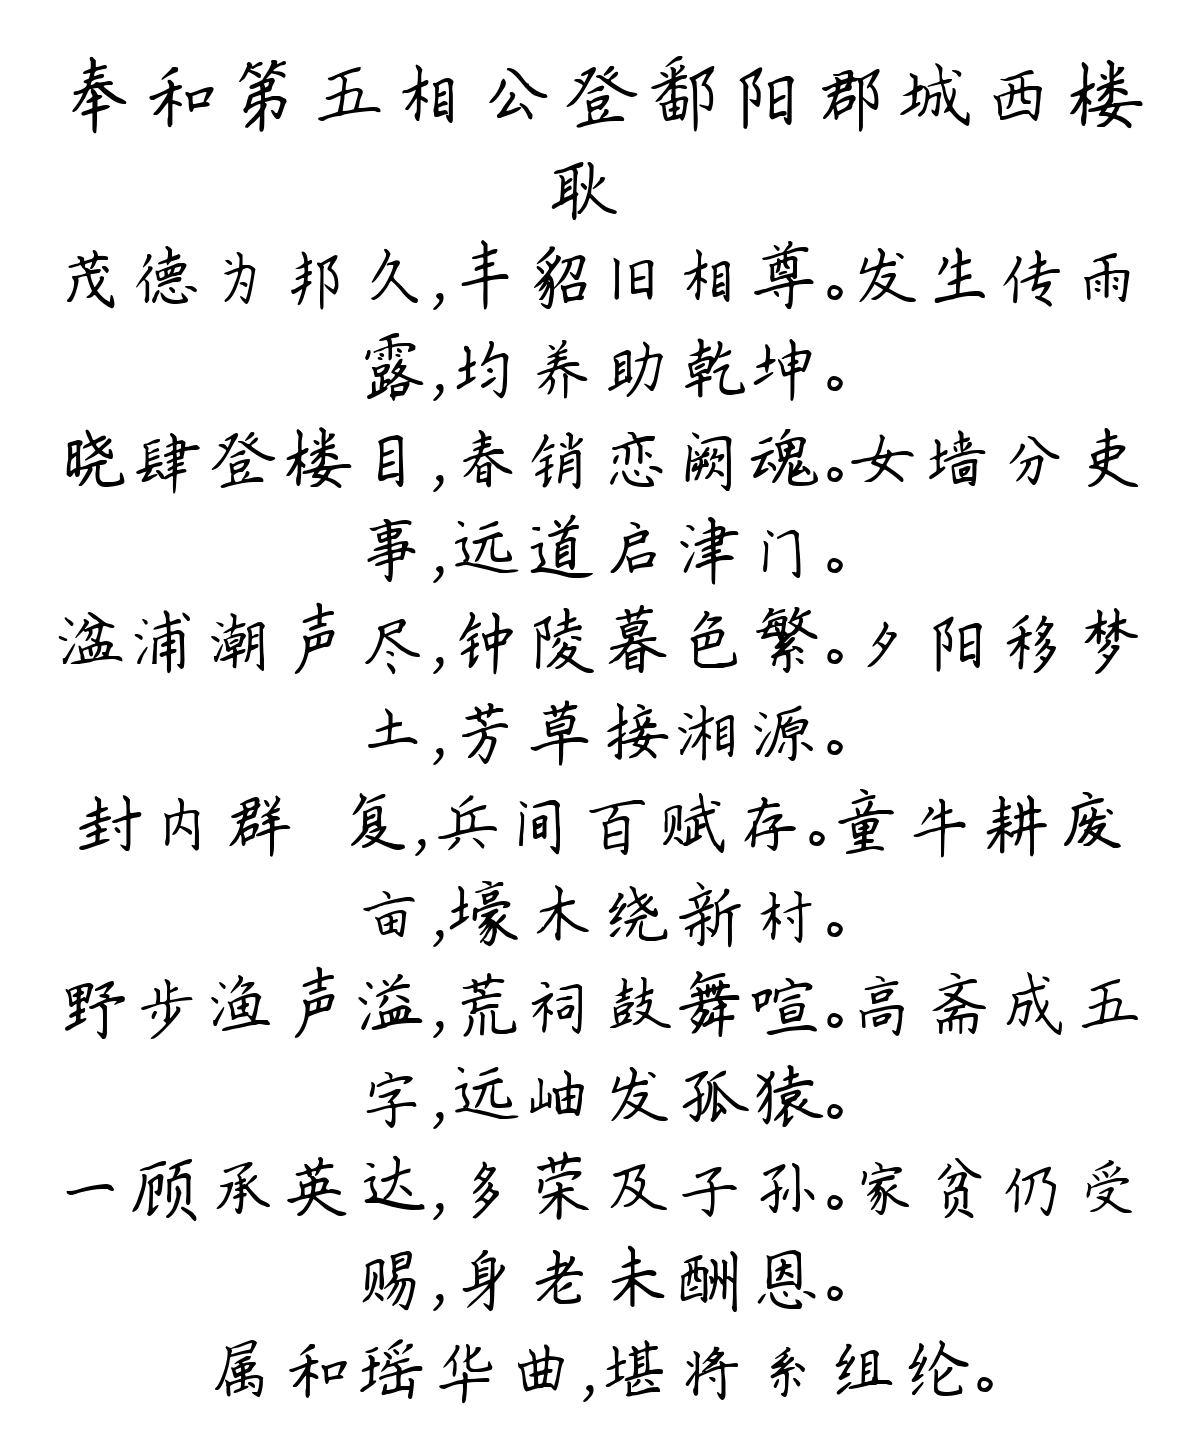 奉和第五相公登鄱阳郡城西楼
耿
茂德为邦久,丰貂旧相尊。发生传雨
露,均养助乾坤。
晓肆登楼目,春销恋阙魂。女墙分吏
事,远道启津门。
湓浦潮声尽,钟陵暮色繁。夕阳移梦
土,芳草接湘源。
封内群 复,兵间百赋存。童牛耕废
亩,壕木绕新村。
野步渔声溢,荒祠鼓舞喧。高斋成五
字,远岫发孤猿。
一顾承英达,多荣及子孙。家贫仍受
赐,身老未酬恩。
属和瑶华曲,堪将系组纶。